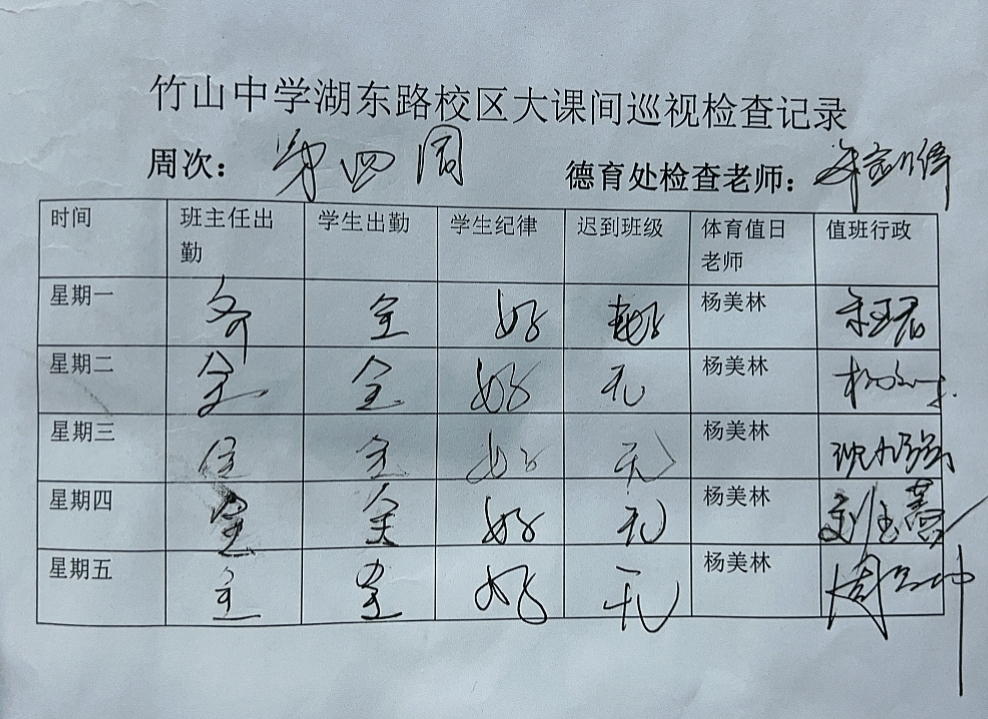 竹山中学湖东路校区大课间巡视检查记录
周次： 第四周 德育处检查老师：
时间 班主任出勤 学生出勤 学生纪律 迟到班级 体育值日老师 值班行政
星期一 齐 全 好 杨美林
星期二 全 全 好 无 杨美林
星期三 全 全 好 无 杨美林 沈九强
星期四 全 全 好 无 杨美林
星期五 全 全 好 无 杨美林